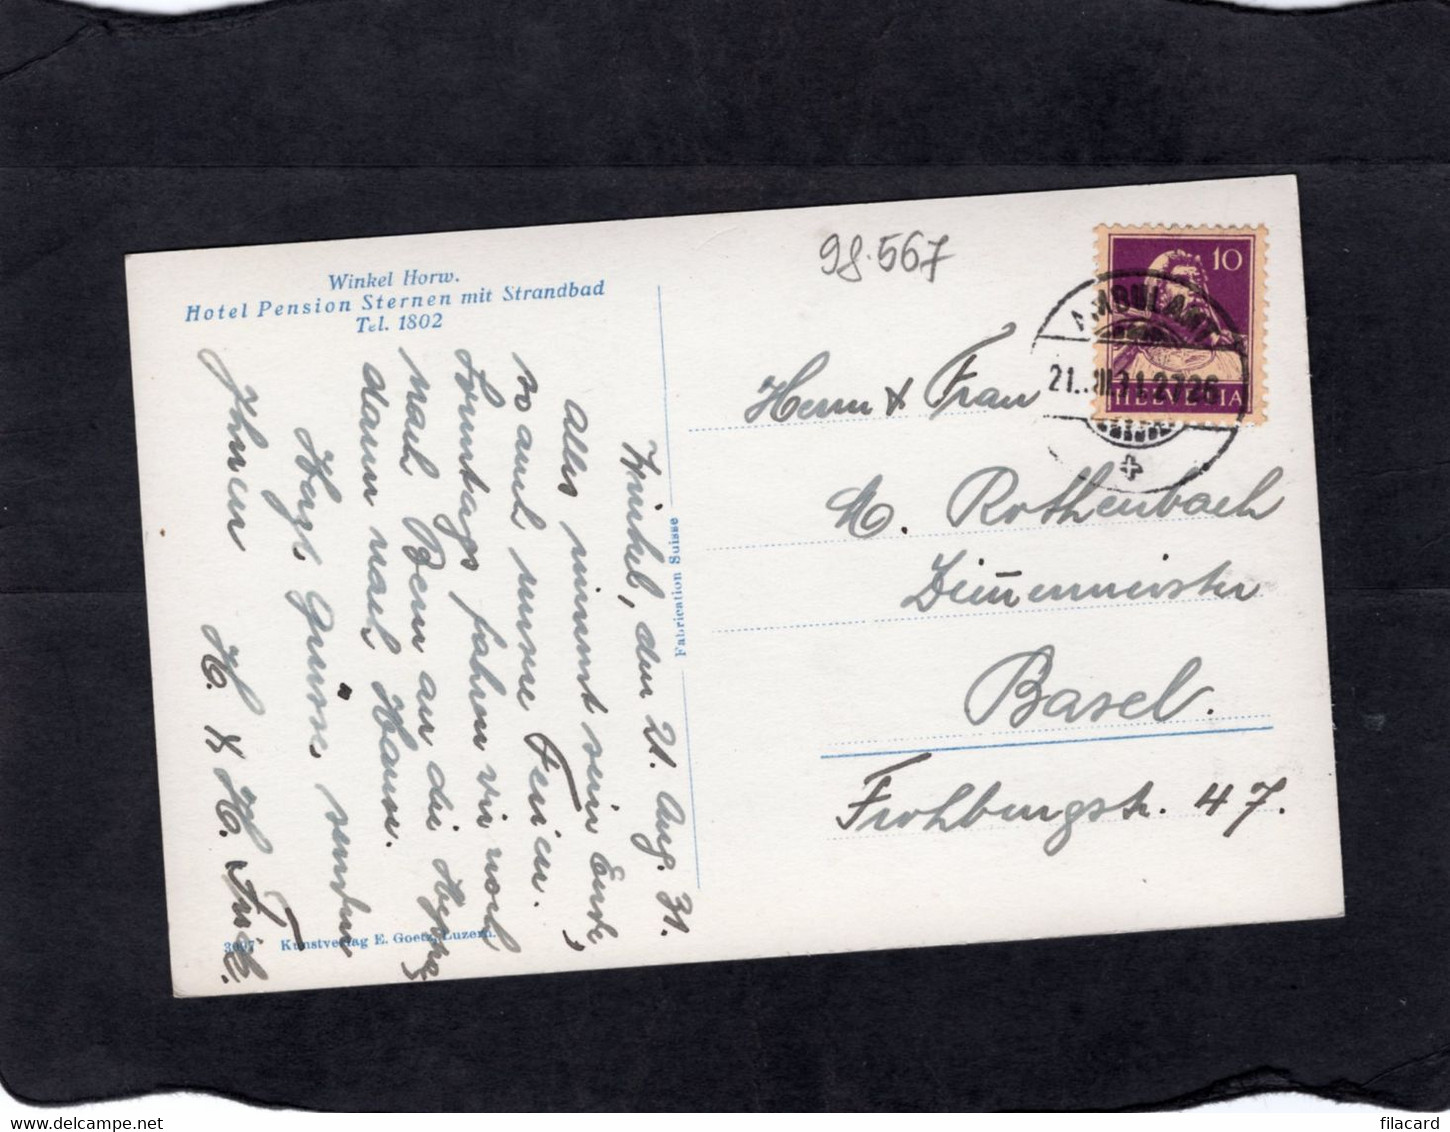 Winkel Horw.
Hotel Pension Sternen mit Strandbad
Tel. 1802
Winkel, den 21. Aug. 31.
Alles nimmt sein Ende,
so auch unsere Ferien.
Sonntags fahren wir noch
nach Bern an die Hyspa,
dann nach Hause.
Herzl. Grüsse senden
Ihnen H. & H.
3007 Kunstverlag E. Goetz, Luzern.
Fabrication Suisse
98.567
10
HELVETIA
AMBULANT
21.VIII.31.2726
Herrn & Frau
M. Rothenbach
Zimmermeister
Basel.
Frohburgstr. 47.
filacard